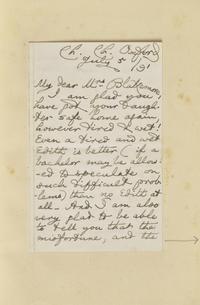 Ch. Ch. Oxford
July 5 /81
My dear Mrs Blakemore,
I am glad you
have got your daugh-
-ter safe home again,
however tired & wet!
Even a tired and wet
Edith is better (if a
bachelor may be allow-
-ed to speculate on
such difficult prob-
lems) than no Edith at
all. And I am also
very glad to be able
to tell you that the
misfortune, and the